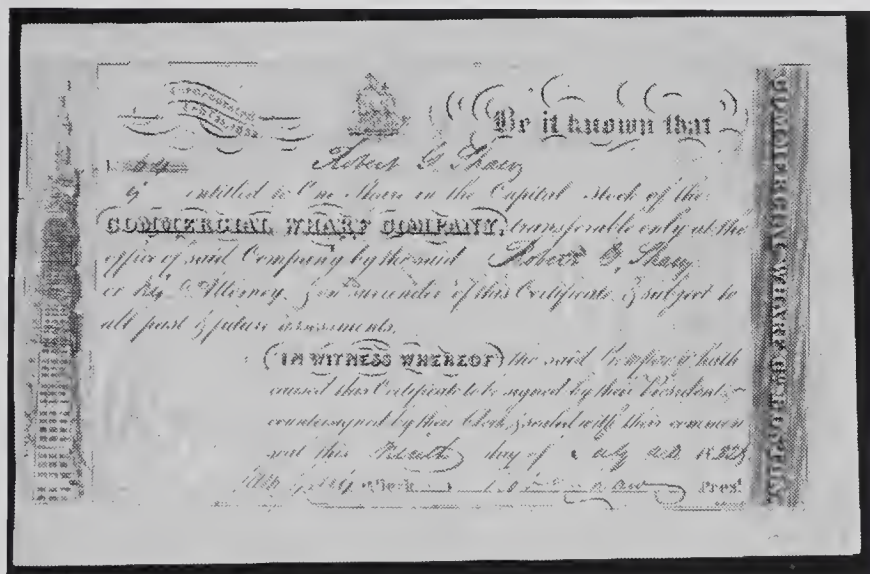 Incorporated
Be it known that
No. 64 Robert G Shaw
is entitled to One Share in the Capital Stock of the
COMMERCIAL WHARF COMPANY, transferable only at the
office of said Company by the said Robert G. Shaw
or his Attorney, & on surrender of this Certificate, & subject to
all past & future assessments.
IN WITNESS WHEREOF the said Company hath
caused this Certificate to be signed by their President
countersigned by their Clerk & sealed with their common
seal this Ninth day of July A.D. 183
Clerk Pres.t
COMMERCIAL WHARF CO. BOSTON.